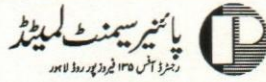 پائنیر سیمنٹ لمیٹڈ
رجسٹرڈ آفس ۱۳۵ فیروزپور روڈ لاہور